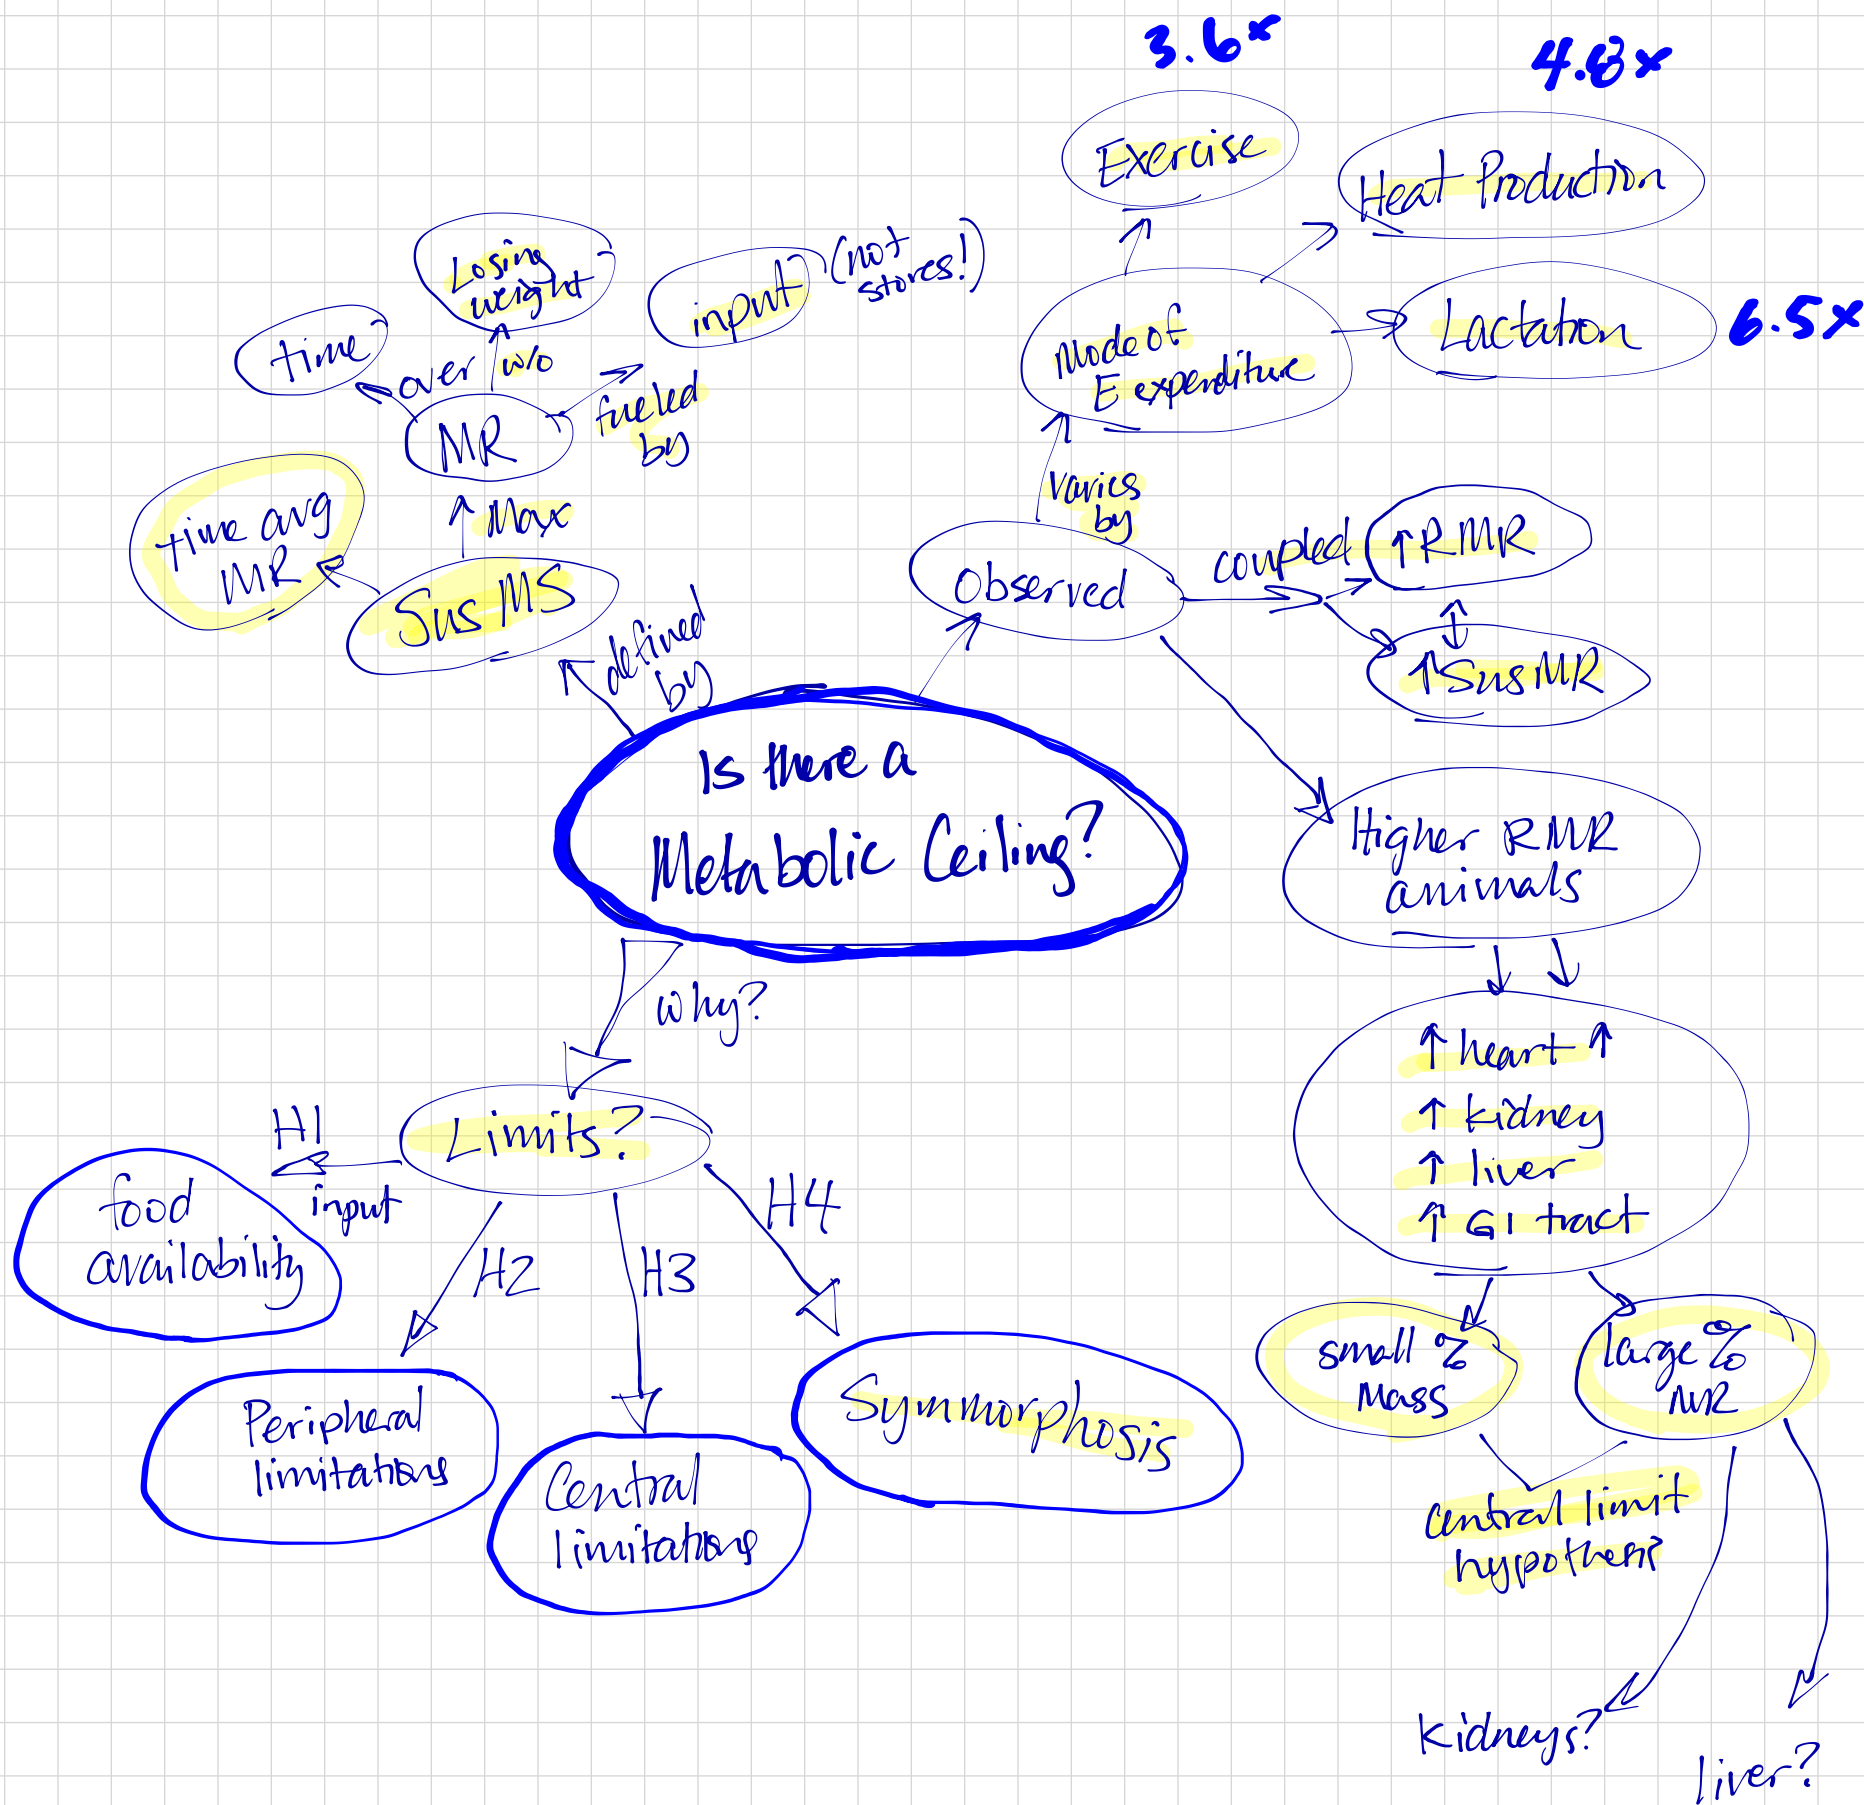 3.6x
4.8x
Exercise
Heat Production
Losing
weight
input
(not
stores!)
time
over
w/o
fueled
by
MR
Mode of
E expenditure
Lactation
6.5x
time avg
MR
↑ Max
Sus MS
defined
by
varies
by
Observed
coupled
↑RMR
↕
↑SusMR
Is there a
Metabolic Ceiling?
Higher RMR
animals
why?
↑ heart ↑
↑ kidney
↑ liver
↑ GI tract
Limits?
H1
input
food
availability
H2
H3
H4
Peripheral
limitations
Central
limitations
Symmorphosis
small %
Mass
large %
MR
central limit
hypothesis
kidneys?
liver?